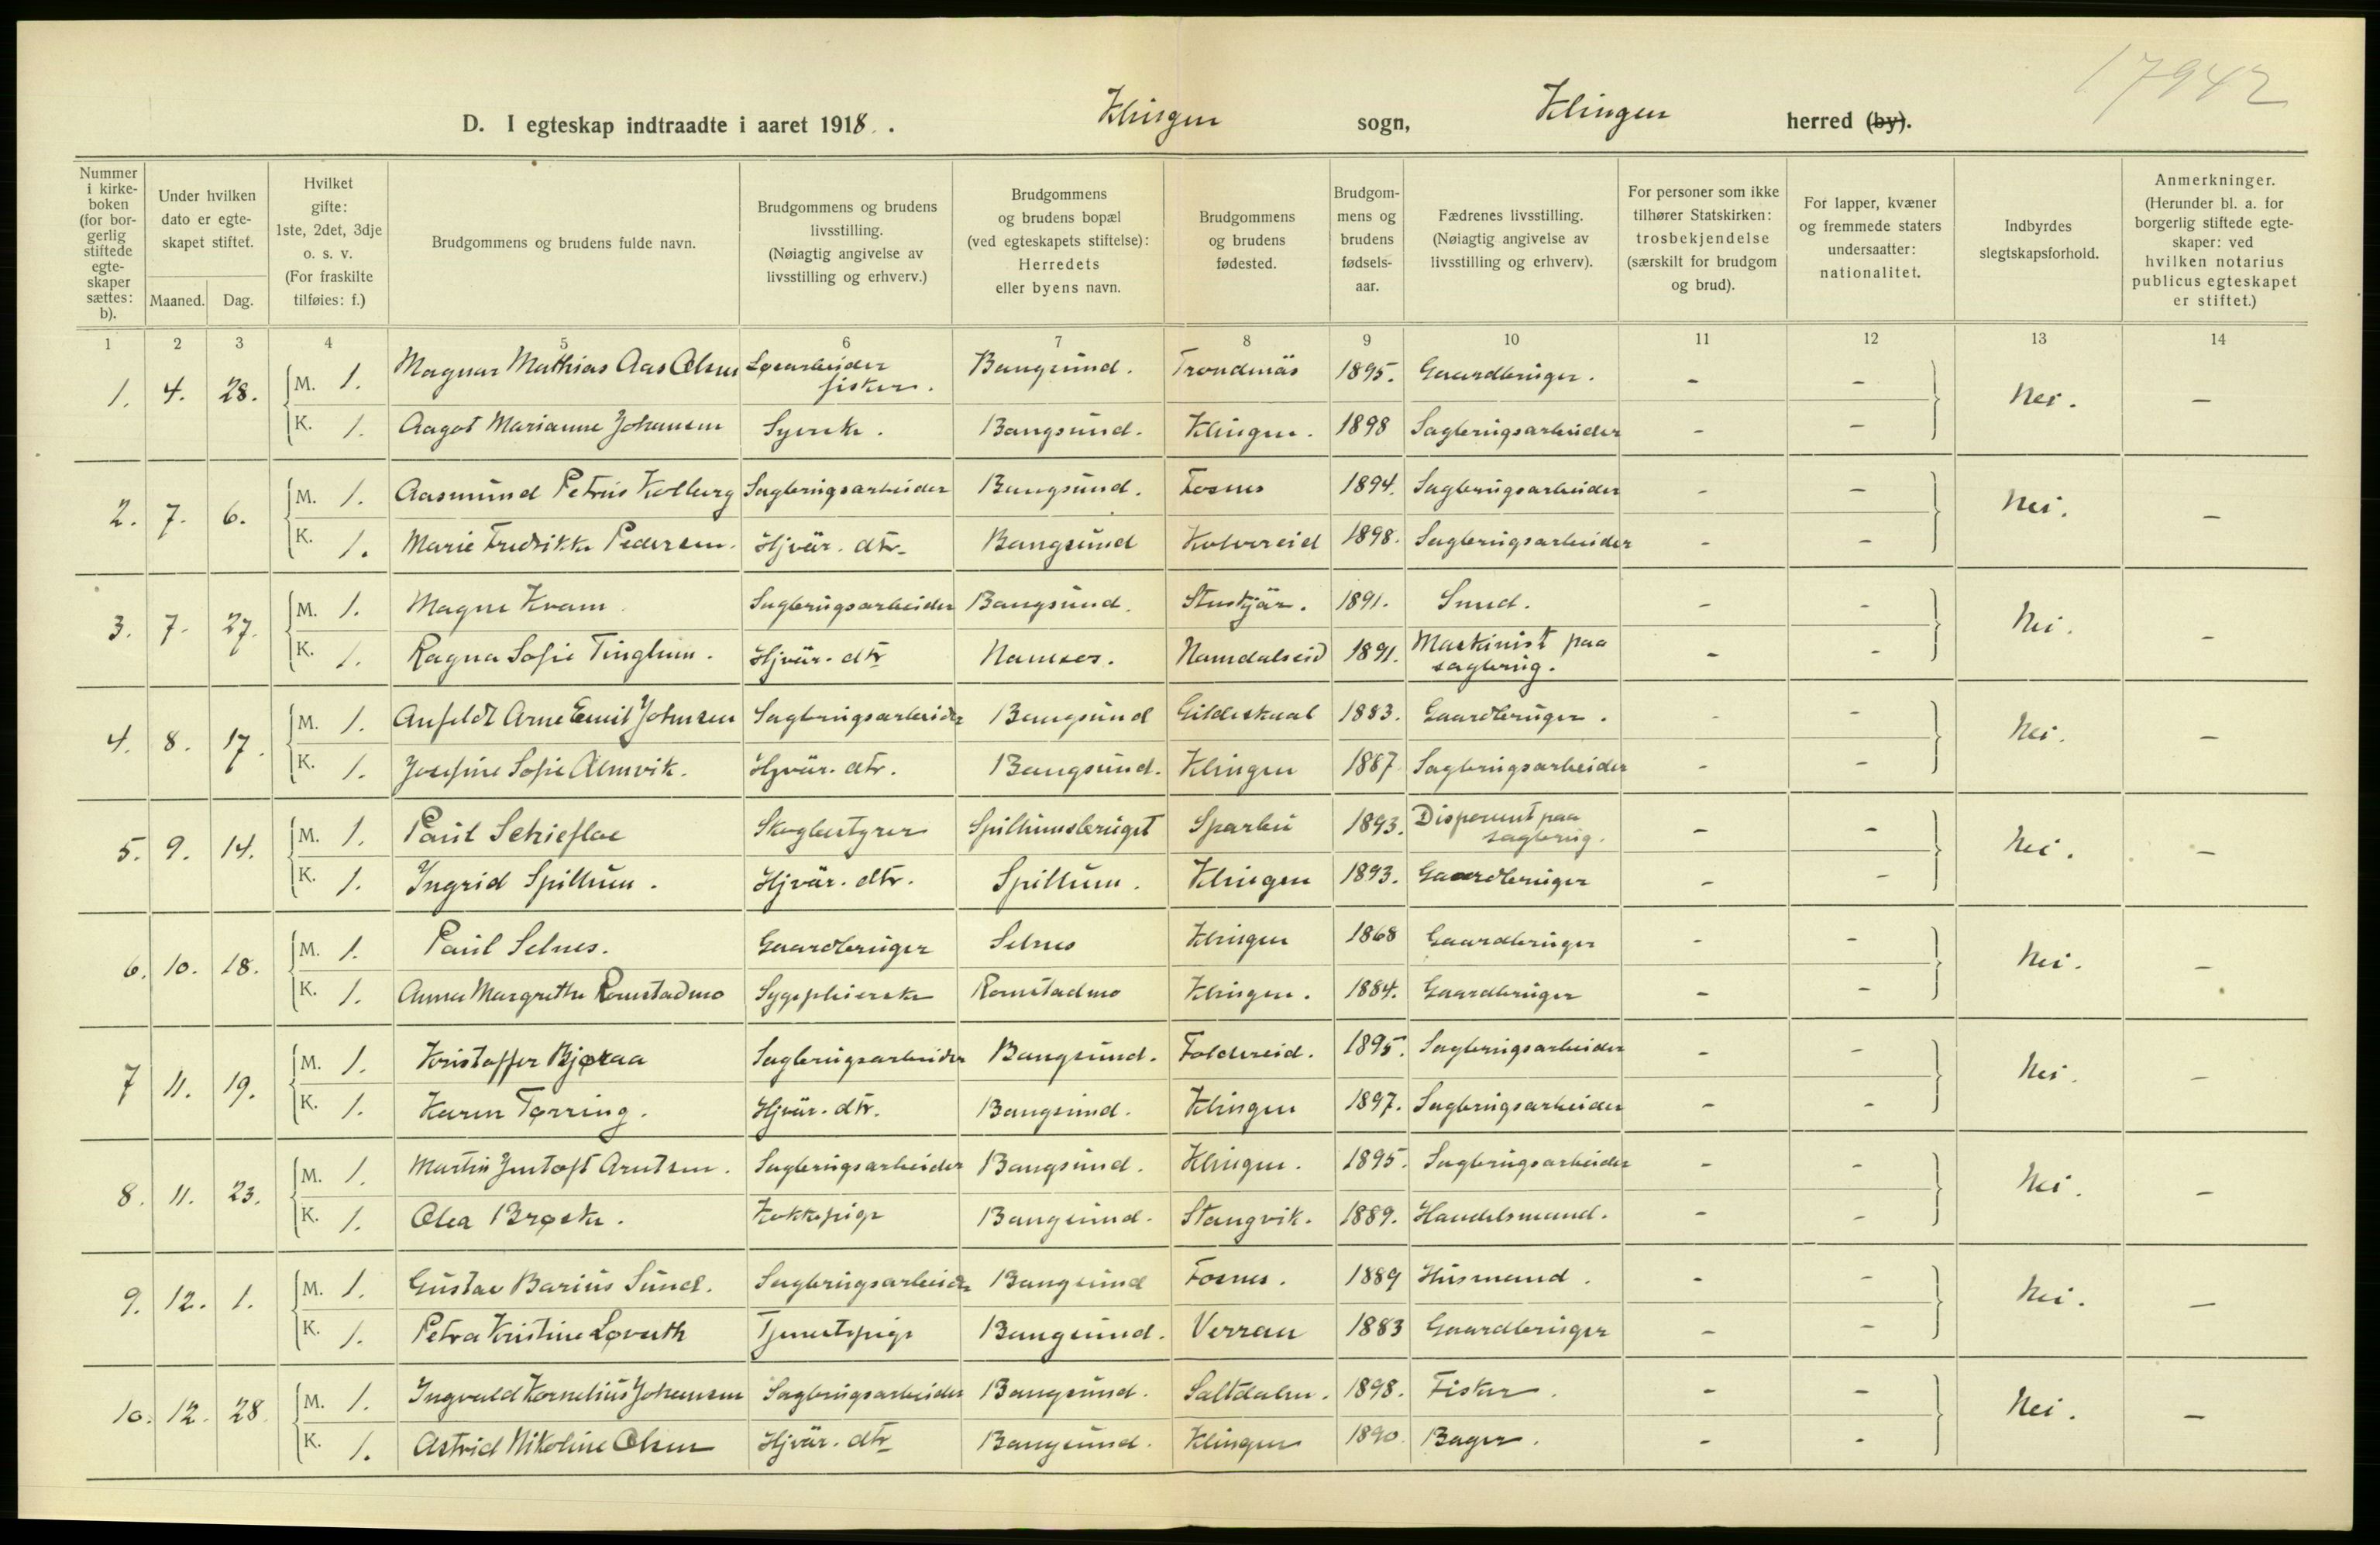 17942
D. I egteskap indtraadte i aaret 1918. Klingen sogn, Klingen herred (by).
Nummer i kirkeboken (for borgerlig stiftede egteskaper sættes: b).
Under hvilken dato er egteskapet stiftet.
Maaned. Dag.
Hvilket gifte: 1ste, 2det, 3dje o. s. v. (For fraskilte tilføies: f.)
Brudgommens og brudens fulde navn.
Brudgommens og brudens livsstilling. (Nøiagtig angivelse av livsstilling og erhverv.)
Brudgommens og brudens bopæl (ved egteskapets stiftelse): Herredets eller byens navn.
Brudgommens og brudens fødested.
Brudgommens og brudens fødselsaar.
Fædrenes livsstilling. (Nøiagtig angivelse av livsstilling og erhverv).
For personer som ikke tilhører Statskirken: trosbekjendelse (særskilt for brudgom og brud).
For lapper, kvæner og fremmede staters undersaatter: nationalitet.
Indbyrdes slegtskapsforhold.
Anmerkninger. (Herunder bl. a. for borgerlig stiftede egteskaper: ved hvilken notarius publicus egteskapet er stiftet.)
1 2 3 4 5 6 7 8 9 10 11 12 13 14
1. 4. 28. M. 1. Magnar Mathias Aas Olsen Løsarbeider fisker. Bangsund. Trondenäs 1895. Gaardbruger. - - Nei. -
K. 1. Aagot Marianne Johansen Syerske. Bangsund. Klingen. 1898 Sagbrugsarbeider - -
2. 7. 6. M. 1. Aasmund Petrus Kolberg Sagbrugsarbeider Bangsund. Fosnes 1894. Sagbrugsarbeider - - Nei. -
K. 1. Marie Fredrikke Pedersen. Hjvär. dtr. Bangsund Kolvereid 1898. Sagbrugsarbeider - -
3. 7. 27. M. 1. Magne Kvam Sagbrugsarbeider Bangsund. Stenkjär. 1891. Smed. - - Nei. -
K. 1. Ragna Sofie Tinglum. Hjvär. dtr Namsos. Namdalseid 1891. Maskinist paa sagbrug. - -
4. 8. 17. M. 1. Anfeldt Arne Emil Johnsen Sagbrugsarbeider Bangsund Gildeskaal 1883. Gaardbruger. - - Nei. -
K. 1. Josefine Sofie Almvik. Hjvär. dtr. Bangsund. Klingen 1887 Sagbrugsarbeider - -
5. 9. 14. M. 1. Paul Schiefloe Skogbestyrer Spillumsbruget Sparbu 1893. Disponent paa sagbrug. - - Nei. -
K. 1. Ingrid Spillum. Hjvär. dtr. Spillum. Klingen 1893. Gaardbruger - -
6. 10. 18. M. 1. Paul Selnes. Gaardbruger Selnes Klingen 1868 Gaardbruger - - Nei. -
K. 1. Anna Margrethe Romstadmo Sygepleierske Romstadmo Klingen. 1884. Gaardbruger - -
7 11. 19. M. 1. Kristoffer Bjøraa Sagbrugsarbeider Bangsund. Foldereid. 1895. Sagbrugsarbeider - - Nei. -
K. 1. Karen Tørring. Hjvär. dtr. Bangsund. Klingen 1897. Sagbrugsarbeider - -
8. 11. 23. M. 1. Martin Jentoft Arntsen. Sagbrugsarbeider Bangsund. Klingen. 1895. Sagbrugsarbeider - - Nei. -
K. 1. Olea Brøske. Kokkepige Bangsund. Stangvik. 1889. Handelsmand. - -
9. 12. 1. M. 1. Gustav Barius Sund. Sagbrugsarbeider Bangsund Fosnes. 1889 Husmand. - - Nei. -
K. 1. Petra Kristine Løvseth Tjenestepige Bangsund. Verran 1883 Gaardbruger - -
10. 12. 28. M. 1. Ingvald Kornelius Johansen Sagbrugsarbeider Bangsund. Saltdalen. 1898. Fisker. - - Nei. -
K. 1. Astrid Nikoline Olsen Hjvär. dtr Bangsund. Klingen 1890. Bager. - -